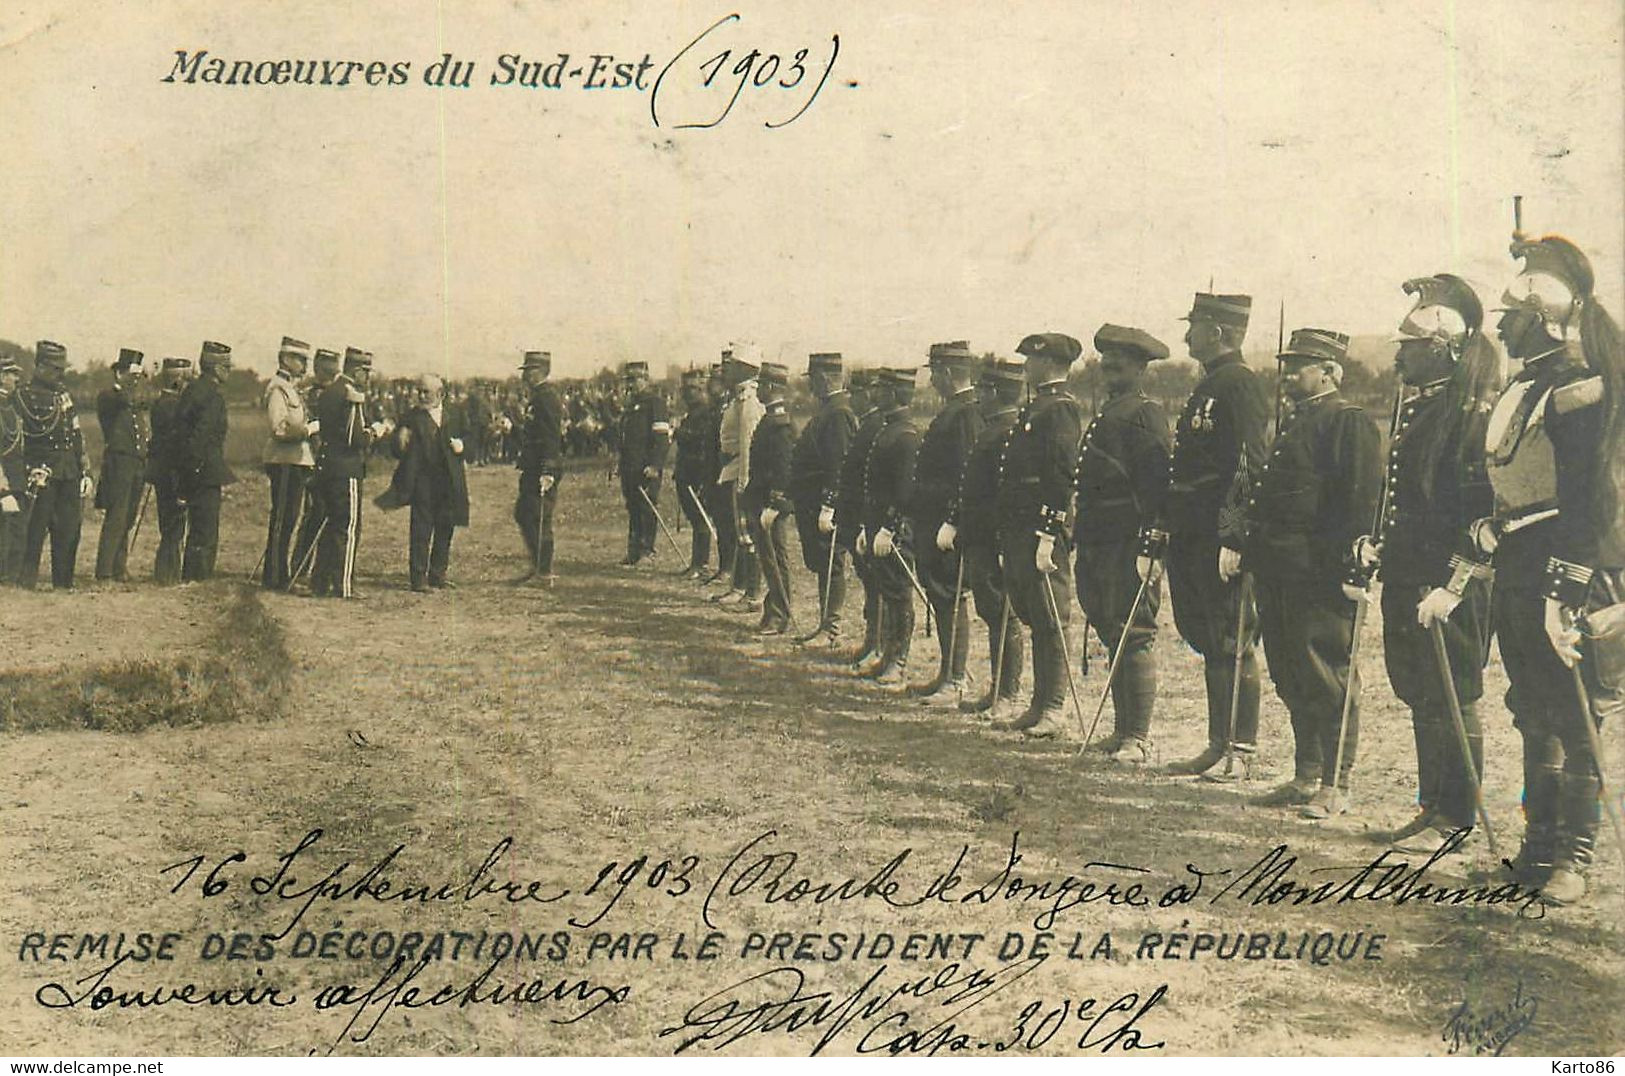 Manœuvres du Sud-Est (1903).
16 Septembre 1903 (Route de Donzère à Montélimar
REMISE DES DÉCORATIONS PAR LE PRÉSIDENT DE LA RÉPUBLIQUE
Souvenir affectueux
Cap. 30e Ch
© www.delcampe.net
Karto86